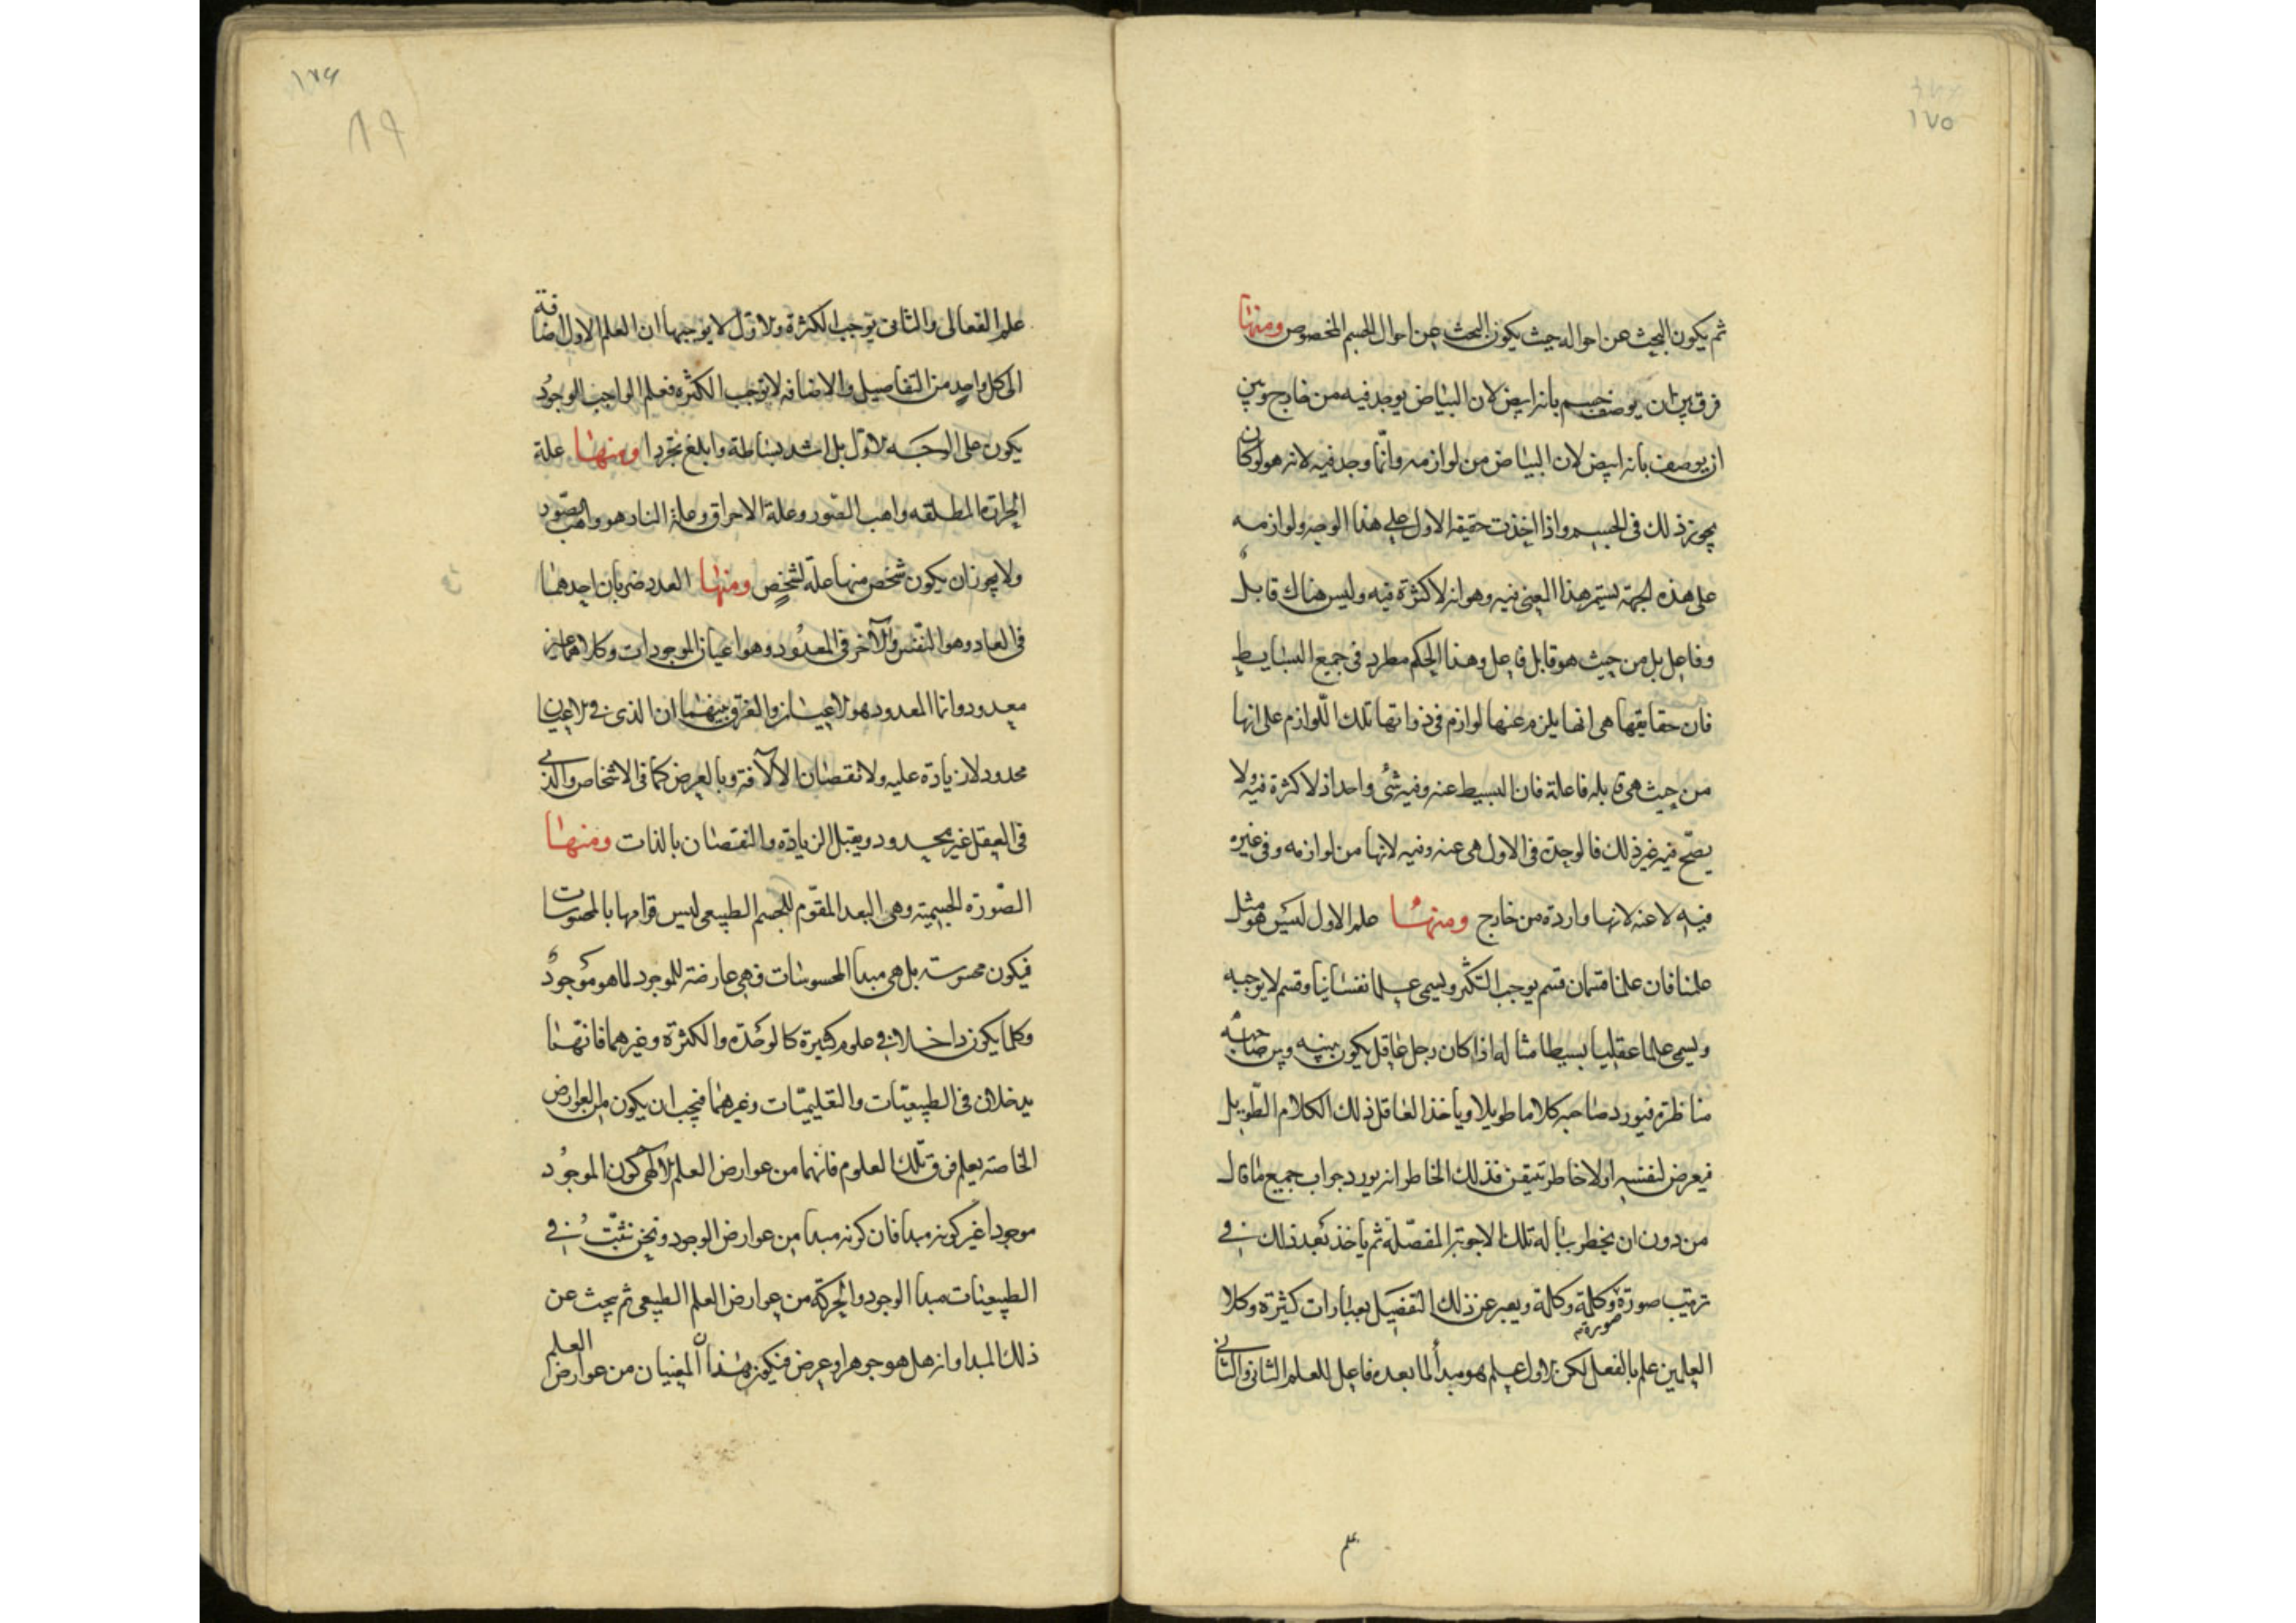 ١٧٥
ثم يكون البحث عن احواله حيث يكون البحث عن احوال الجسم المخصوص ومنها
فرق بين ان يوصف جسم بانه ابيض لان البياض يوجد فيه من خارج وبين
ان يوصف بانه ابيض لان البياض من لوازمه وانما وجد فيه لانه هو لو كان
يجوز ذلك فى الجسم واذا اخذت حقيقة الاول على هذا الوجه ولوازمه
على هذه الجهة يستمر هذا المعنى فيه وهو انه لا كثرة فيه وليس هناك قابل
وفاعل بل من حيث هو قابل فاعل وهذا الحكم مطرد فى جميع البسايط
فان حقايقها هى انها يلزم عنها لوازم فى ذواتها تلك اللوازم على انها
من حيث هى قابله فاعلة فان البسيط عنه وفيه شئ واحد اذ لا كثرة فيه ولا
يصح فيه غير ذلك فالوحدة فى الاول هى عنه وفيه لانها من لوازمه وفى غيره
فيه لا عنه لانها واردة من خارج ومنها علم الاول ليس هو مثل
علمنا فان علمنا قسمان قسم يوجب التكثر ويسمى علما نفسانيا وقسم لا يوجبه
ويسمى علما عقليا بسيطا مثاله اذا كان رجل عاقل يكون بينه وبين صاحبه
مناظرة فيورد صاحبه كلاما طويلا وياخذ العاقل ذلك الكلام الطويل
فيعرض لنفسه اولا خاطر يتيقن فذلك الخاطر انه يورد جواب جميع ما قال
من دون ان يخطر بباله تلك الاجوبة المفصلة ثم ياخذ بعد ذلك فى
ترتيب صورة وكلمة وكلمة ويعبر عن ذلك التفصيل بعبارات كثيرة وكلا
صورة
العلمين علم بالفعل لكن الاول علم هو مبدأ لما بعده فاعل للعلم الثانى والثانى
علم
١٧٦
٨٩
علم انفعالى والثانى يوجب الكثرة والاول لا يوجبها ان العلم الاول اضافة
الى كل واحد من التفاصيل والاضافة لا توجب الكثره فعلم الواجب الوجود
يكون على الوجه الاول بل اشد بساطة وابلغ تجردا ومنها علة
الحرارة المطلقه واهب الصور وعلة الاحراق وعلة النار هو واهب الصور
ولا يجوز ان يكون شخص منها علة لشخص ومنها العدد ضربان احدهما
فى العاد وهو النفس والآخر فى المعدود وهو اعيان الموجودات وكلاهما غير
معدود وانما المعدود هو الاعيان والفرق بينهما ان الذى فى الاعيان
محدود لا زيادة عليه ولا نقصان الا لآفة وبالعرض كما فى الاشخاص والذى
فى العقل غير محدود ويقبل الزيادة والنقصان بالذات ومنها
الصورة الجسمية وهى البعد المقوم للجسم الطبيعى ليس قوامها بالمحسوسات
فيكون محسوسة بل هى مبدا المحسوسات فهى عارضة للموجود لما هو موجود
وكلما يكون داخلا فى علوم كثيرة كالوحدة والكثرة وغيرهما فانهما
يدخلان فى الطبيعيات والتعليميات وغيرهما فيجب ان يكون من العوارض
الخاصة بعلم فوق تلك العلوم فانهما من عوارض العلم الالهى كون الموجود
موجودا غير كونه مبدا فان كونه مبدا من عوارض الوجود ونحن نثبت فى
الطبيعيات مبدا الوجود والحركة من عوارض العلم الطبيعى ثم يبحث عن
ذلك المبدا وانه هل هو جوهر او عرض فيكون هذان المعنيان من عوارض العلم